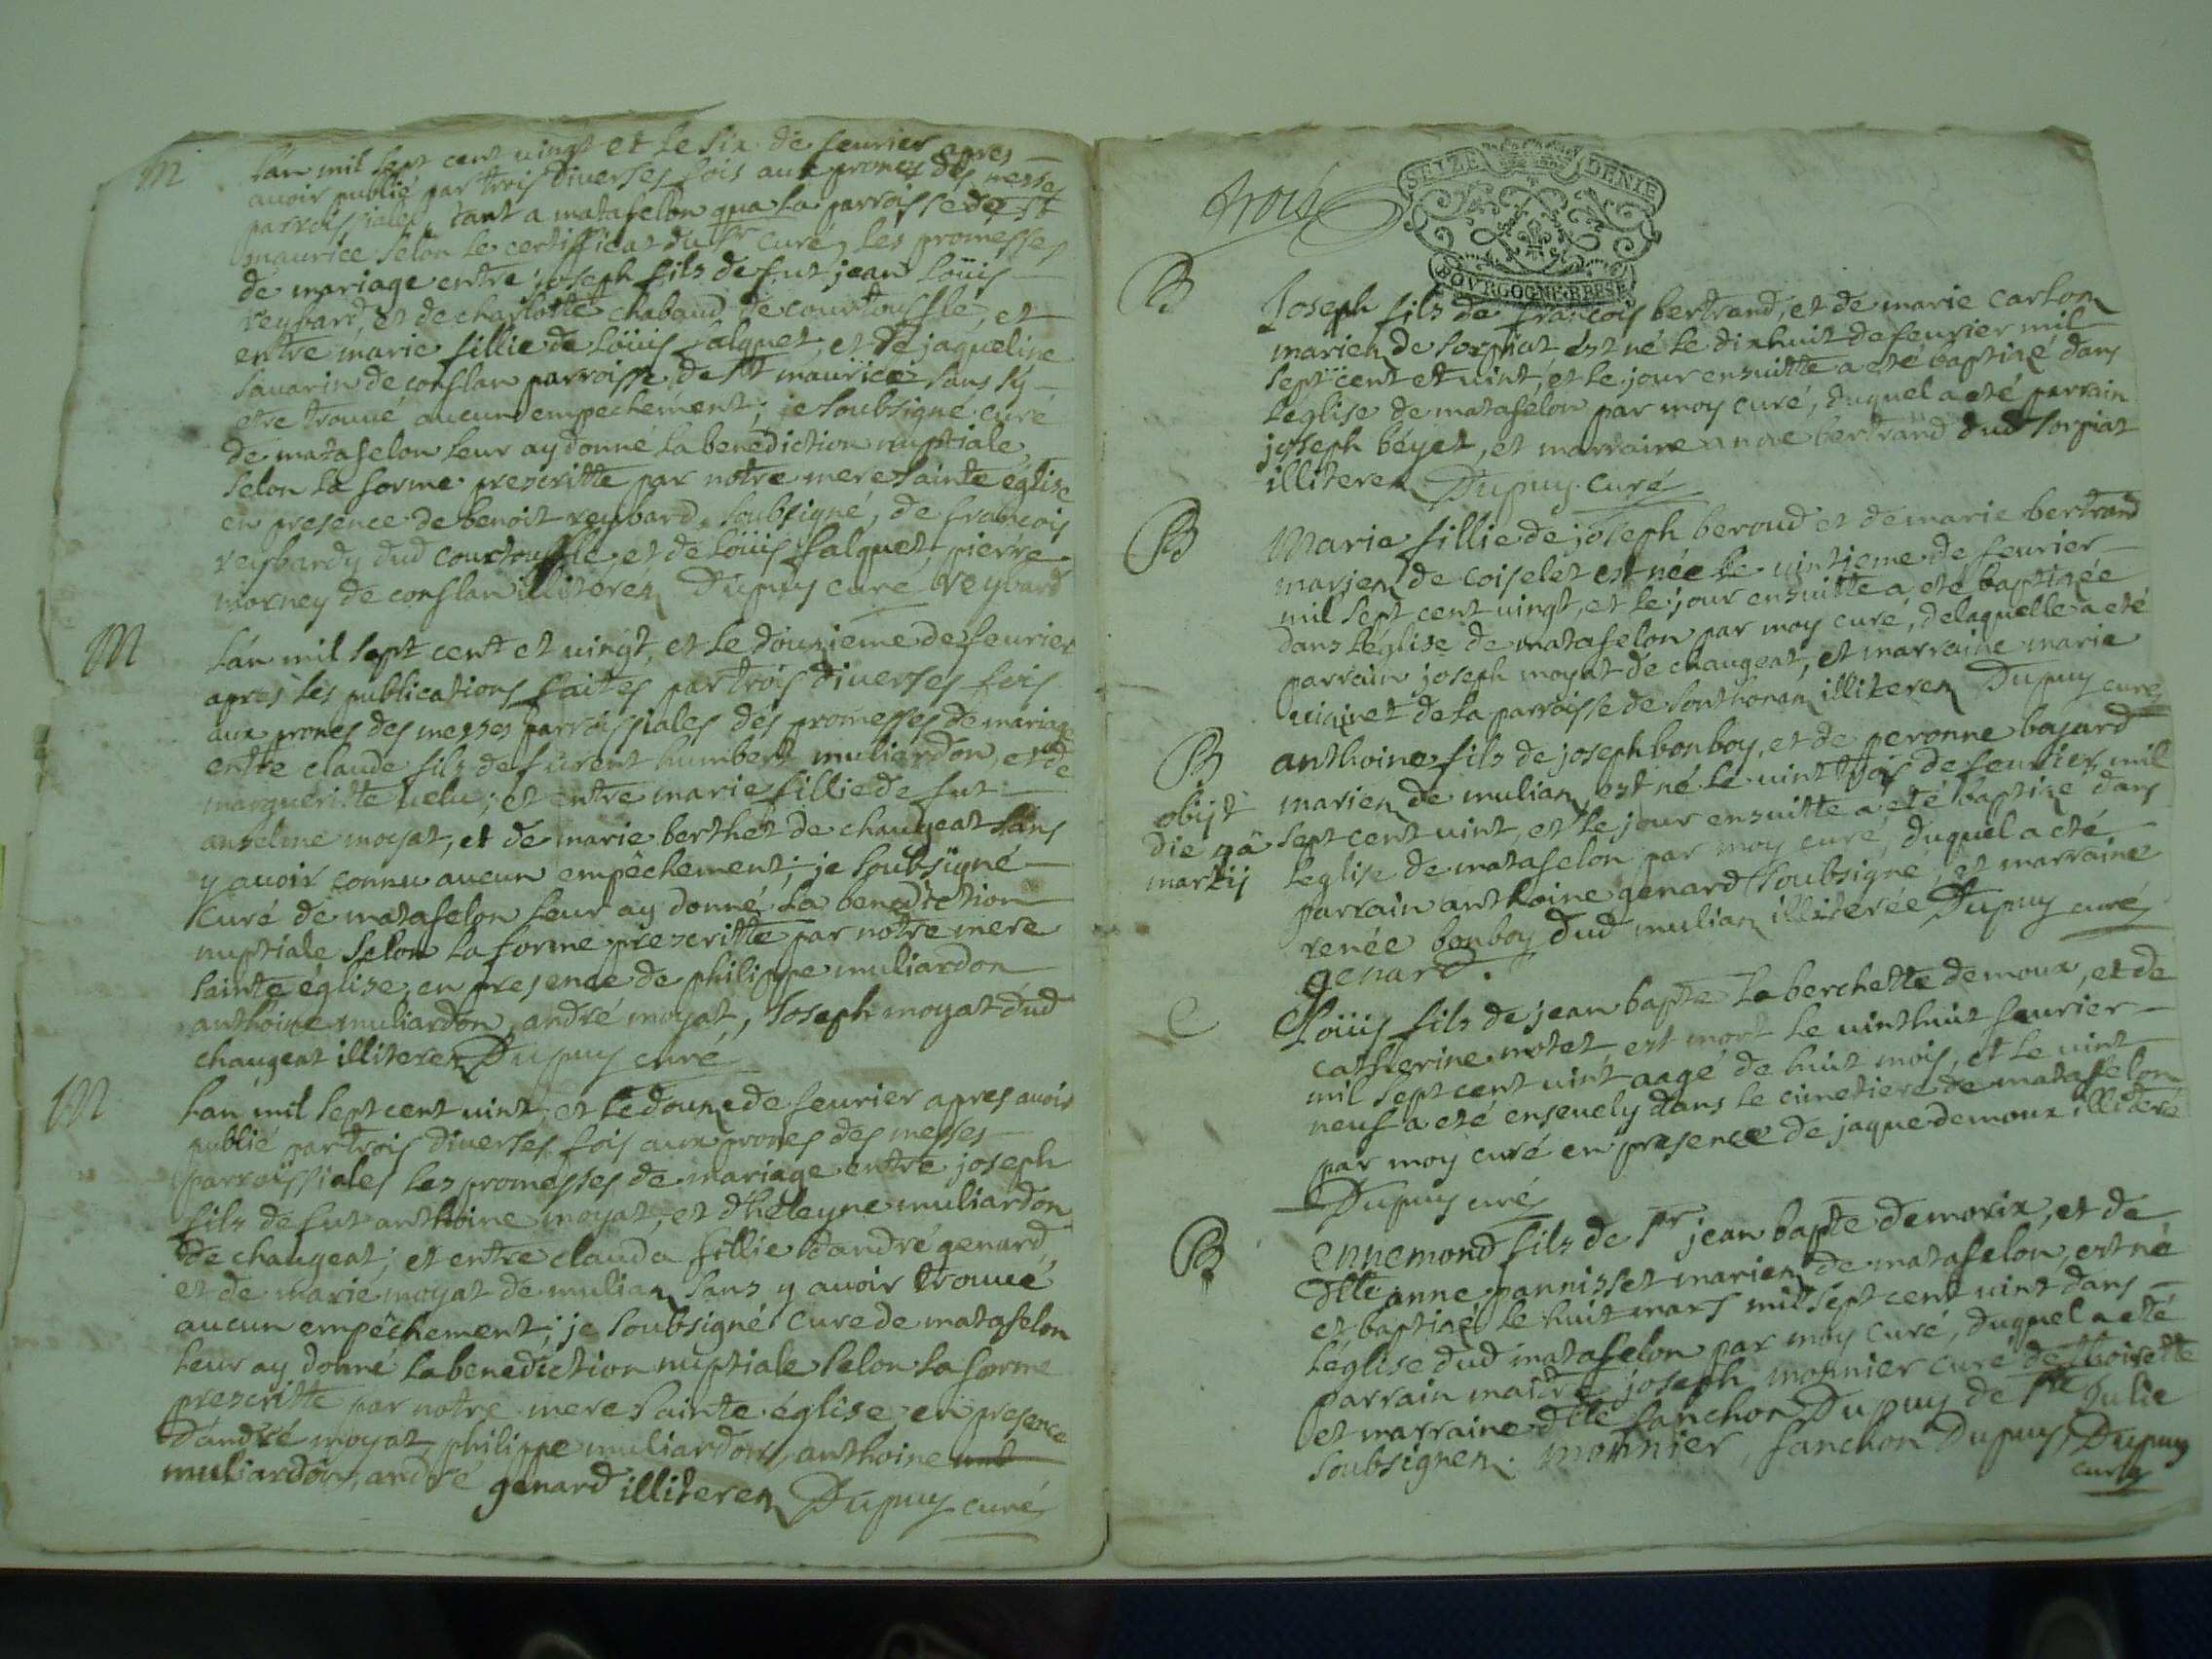 M
lán mil sept cent vingt et le six de feurier apres
auoir publié par trois diuerses fois aux prones des messes
parroissiales, tant a matafelon qua la parroisse de st
maurice selon le certifficat du sr curé, les promesses
de mariage entre joseph fils de fut jean loüis
reybard, et de charlotte chabaud de courtouffle, et
entre marie fillie de loüis falquet, et de jaqueline
sauarin de conflan parroisse de st maurice sans sÿ
etre trouué aucun empechement; je soubsigné curé
de matafelon leur ay donné la benediction nuptiale
selon la forme prescritte par notre mere sainte église
en presence de benoit reybard soubsigné, de francois
reybardy dud courtouffle, et de loüis falquet, pierre
morney de conflan illiterez Dupuy curé reybard
M
lán mil sept cent et vingt, et le douzieme de feurier
apres les publications faites par trois diuerses fois
aux prones des messes parroissiales des promesses de mariage
entre claude fils de furent humbert muliardon, et de
margueritte uelu; et entre marie fillie de fut
anselme moyat, et de marie berthet de changeat sans
y auoir connu aucun empêchement; je soubsigné
curé de matafelon leur ay donné la benediction
nuptiale selon la forme prescritte par notre mere
sainte église, en presence de philippe muliardon
anthoine muliardon, andré moyat, Joseph moyat dud
changeat illiterez Dupuy curé
M
lan mil sept cent uint, et le douze de feurier apres auoir
publié par trois diuerses fois aux prones des messes
parroissiales les promesses de mariage entre joseph
fils de fut anthoine moyat, et dheleyne muliardon
de changeat; et entre clauda fillie dandré genard
et de marie moyat de mulian sans y auoir trouué
aucun empêchement; je soubsigné curé de matafelon
leur ay donné la benediction nuptiale selon la forme
prescritte par notre mere sainte église, en presence
dandré moyat, philippe muliardon, anthoine
muliardon, andré genard illiterez Dupuy curé
trois
SEIZE DENIE
BOVRGOGNE BRESSE
B
Joseph fils de francois bertrand, et de marie carlon
mariez de sorpiat est né le dixhuit de feurier mil
sept cent et uint, et le jour ensuitte a eté baptizé dans
léglise de matafelon par moy curé, duquel a eté parrain
joseph béyet, et marraine anne bertrand dud sorpiat
illiterez Dupuy curé
B
Marie fillie de joseph beroud et de marie bertrand
mariez de coiselet est née le uintieme de feurier
mil sept cent uingt, et le jour ensuitte a eté baptizée
dans léglise de matafelon par moy curé, delaquelle a eté
parrain joseph moyat de changeat, et marraine marie
de la parroisse de sonthonan illiterez Dupuy curé
B
obijt
die
martij
anthoine fils de joseph bonboy, et de peronne bayard
mariez de mulian, est né le uint trois de feurier mil
sept cent uint, et le jour ensuitte a eté baptizé dans
leglise de matafelon par moy curé, duquel a eté
parrain anthoine genard soubsigné, et marraine
renée bonboy dud mulian illiterée Dupuy curé
genard.
e
Loüis fils de jean bapte laberchette demoux, et de
catherine motet est mort le uinthuit feurier
mil sept cent uint aagé de huit mois, et le uint
neuf a eté enseuely dans le cimetiere de matafelon
par moy curé en presence de jaque demoux illiteré
Dupuy curé
B
Ennemond fils de sr jean bapte demorix, et de
dlle anne pannisset mariez de matafelon, est né
et baptizé le huit mars mil sept cent uint dans
léglise dud matafelon par moy curé, duquel a eté
parrain maitre joseph monnier curé de thoirette
et marraine dlle fanchon Dupuy de ste Julie
soubsignez. monnier, fanchon Dupuy, Dupuy
curé